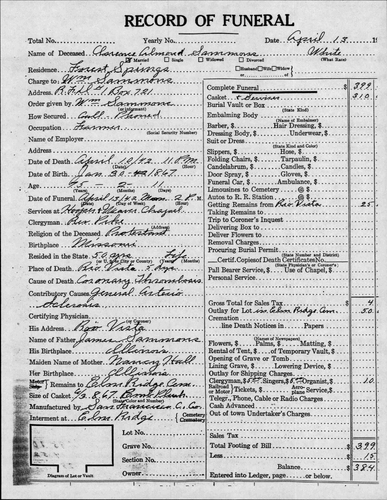 RECORD OF FUNERAL
Total No. Yearly No. Date April 13, 1942
Name of Deceased Clarence Sammons White
Married Single Widowed Divorced Husband Wife Widow (What Race)
Residence Forest Springs
Charge to Wm Sammons
Address R.F.D. #1 Box 721
Order given by Wm Sammons
How Secured Call Phoned
Occupation Farmer
(Social Security Number)
Name of Employer
Address
Date of Death April 10/42 11 P.M.
Date of Birth Jan. 30 - 1867
Age 75 - 2 - 11
(Years) (Months) (Days)
Date of Funeral April 13/42 Mon 2 P.M.
Services at Hooper & Weaver Chapel
Clergyman Rev.
Religion of the Deceased Protestant
Birthplace Missouri
Resided in the State 50 yrs Life
Place of Death Rio Vista
Cause of Death Coronary Thrombosis
Contributory Causes General Arterio
Sclerosis
Certifying Physician
(or Coroner)
His Address Rio Vista
Name of Father James Sammons
His Birthplace Illinois
Maiden Name of Mother Nancy Hall
Her Birthplace Illinois
Remains to Elm Ridge Cem.
Size of Casket 6/3
Manufactured by San Francisco C. Co.
Interment at Elm Ridge Cemetery
Lot No.
Grave No.
Section No.
Owner
Diagram of Lot or Vault
Complete Funeral $ 399
Casket + Services 310
Burial Vault or Box
(State Kind)
Embalming Body
(Name of Embalmer)
Barber, $ Hair Dressing, $
Dressing Body, $ Underwear, $
Suit or Dress
(State Kind and Color)
Slippers, $ Hose, $
Folding Chairs, $ Tarpaulin, $
Candelabrum, $ Candles, $
Door Spray, $ Gloves, $
Funeral Car, $ Ambulance, $
Limousines to Cemetery @ $
Autos to R. R. Station @ $
Getting Remains from Rio Vista 25
Taking Remains to
Trip to Coroner's Inquest
Delivering Box to
Deliver Flowers to
Removal Charges
Procuring Burial Permit
(State Number and District)
Certif. Copies of Death Certificate
(State Physician's or Coroner's)
Pall Bearer Service, $ Use of Chapel, $
Personal Service
Gross Total for Sales Tax $ 4
Outlay for Lot in Elm Ridge Cem. 50
Cremation
line Death Notices in Papers
(Name of Newspapers)
Flowers, $ Palms, $ Matting, $
Rental of Tent, $ of Temporary Vault, $
Opening of Grave or Tomb
Lining Grave, $ Lowering Device, $
Outlay for Shipping Charges
Clergyman, $5 Singers, $ Organist, $ 10
Tickets, $ Service, $
Telegr., Phone, Cable or Radio Charges
Cash Advanced
Out of town Undertaker's Charges
Sales Tax
Total Footing of Bill $ 399
Less 15
Balance $ 384
Entered into Ledger, page or below.